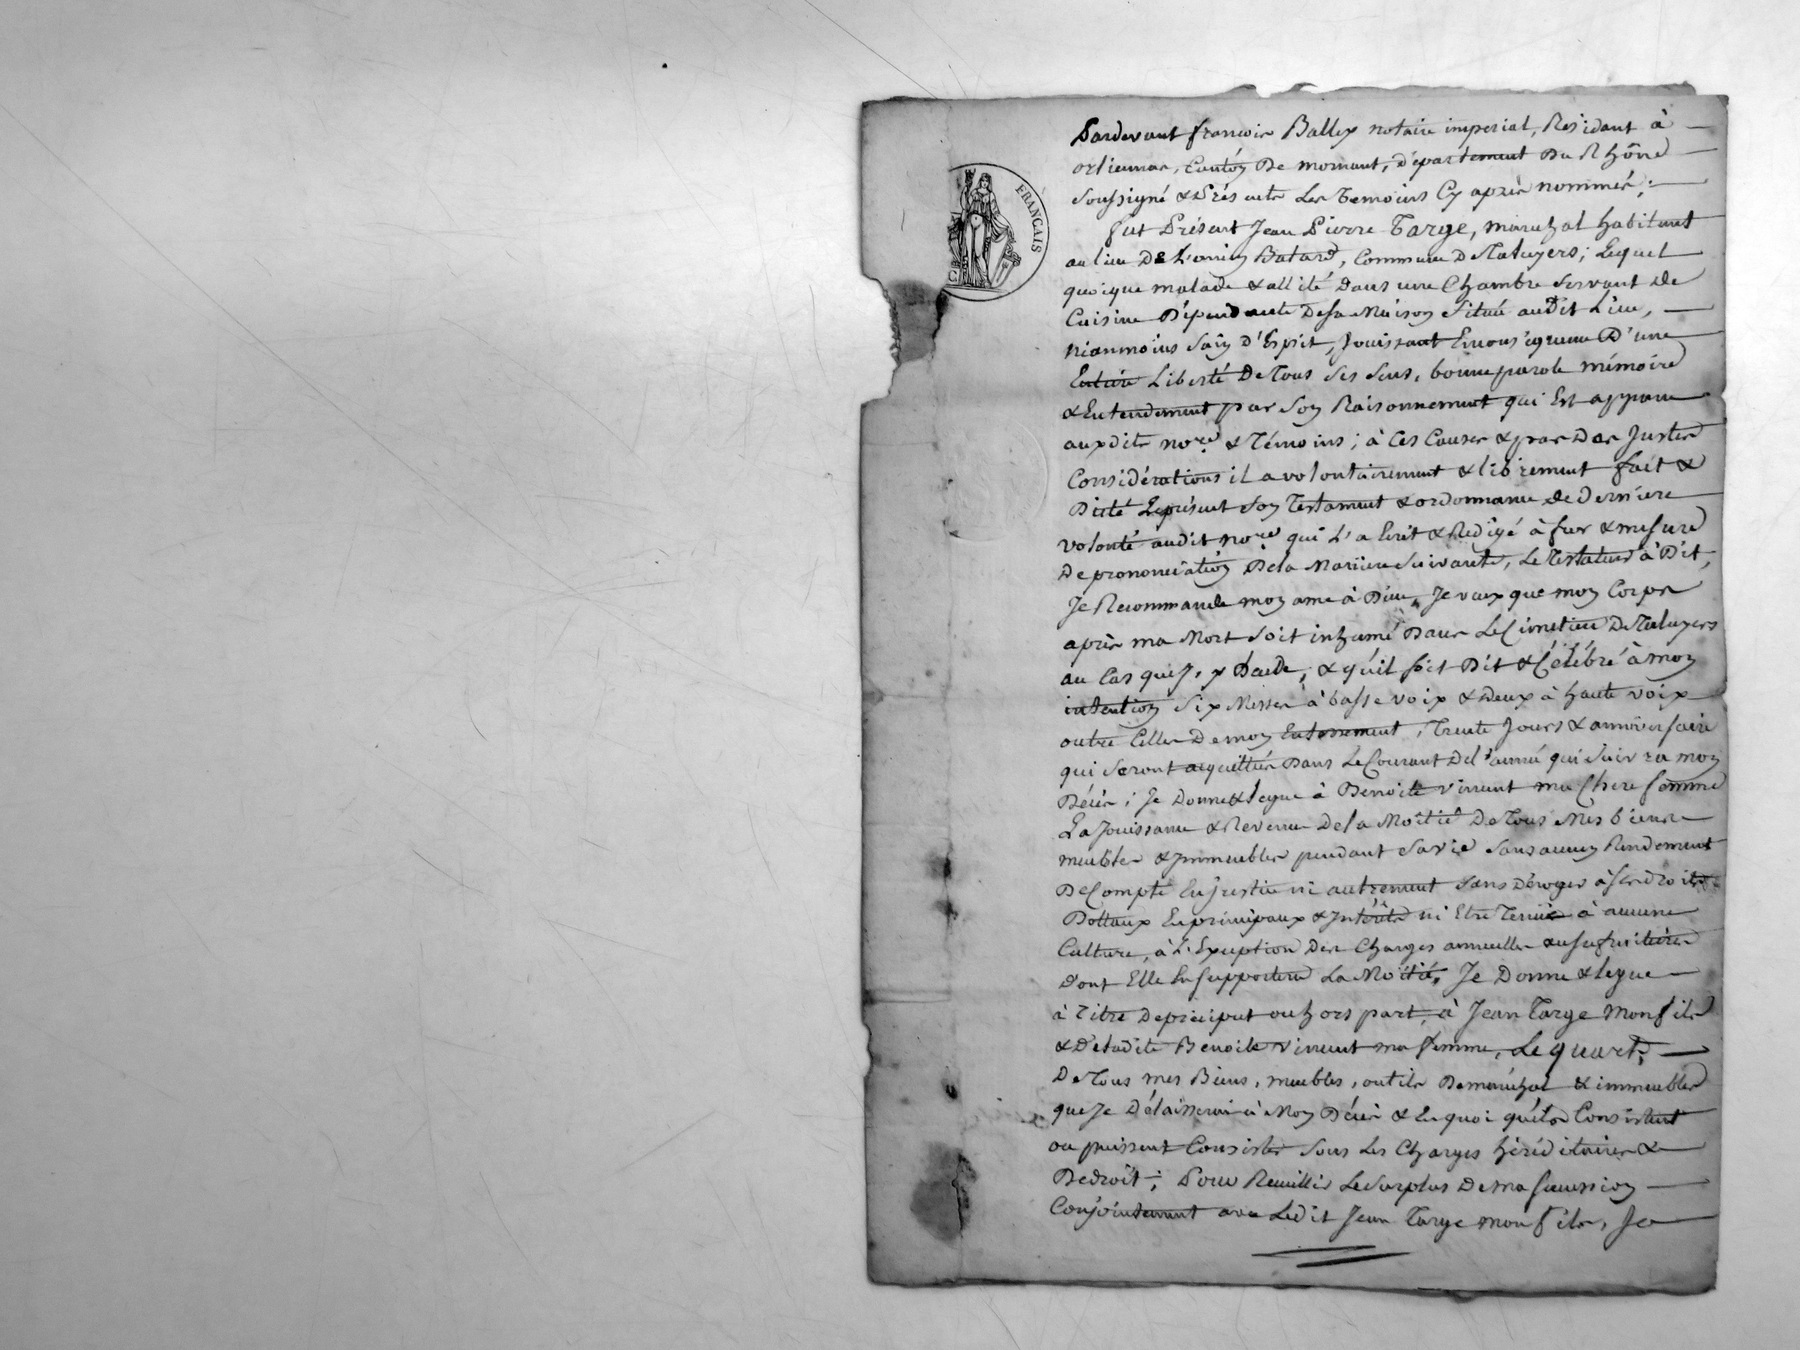 FRANÇAIS
Pardevant françois Balley notaire imperial, Residant à
orlienas, Canton De mornant, Département Du Rhône
Soussigné & Présents Les Temoins Cy après nommés;
fut Présent Jean Pierre Targe, maréchal habitant
au lieu De Batard, Commune De Taluyers; Lequel
quoique malade & allité dans une Chambre servant de
Cuisine Dépendante De sa Maison Située audit Lieu,
nianmoins Sain d'Esprit, Jouissant D'une
Entière Liberté De Tous ses sens, bonne parole mémoire
& Entendement par son Raisonnement qui Est apparu
auxdits nore & Témoins; à Ces Causes & par Des Justes
Considérations il a volontairement & librement fait &
Dicté Leprésent son Testament & ordonnance de derniere
volonté audit nore qui L'a Ecrit & Redigé à fur & mesure
De prononciation De la Maniere Suivante, Le Testateur à Dit,
Je Recommande mon ame à Dieu, Je veux que mon Corps
après ma Mort soit inhumé Dans Le Cimetiere De Taluyers
au Cas que J'y Décede, & qu'il soit Dit & Célébré à mon
intention Six Messes à basse voix & deux à haute voix
outre Celles De mon Enterrement, Trente Jours & anniversaire
qui Seront acquittées Dans Le Courant De l'année qui Suivra mon
Décès; Je Donne & legue à Benoite vinent ma Chere femme
La Jouissance & Revenu De la Moitié De Tous Mes biens
meubles & immeubles pendant Savie Sans aucun Rendement
De Compte En Justice ni autrement Sans Déroger à ses droits
Dottaux En principaux & Intérêts ni Etre Tenüe à aucune
Culture, à L'Exception Des Charges annuelles & usufruitières
dont Elle En supportera La Moitié, Je Donne & legue
à Titre De préciput ou hors part, à Jean Targe Mon fils
& De ladite Benoite vinent ma femme, Le quart,
De Tous mes Biens, meubles, outils De maréchal & immeubles
que Je Délaisserai à Mon Décès & En quoi qu'ils Consistent
ou puissent Consister Sous Les Charges héréditaires &
De droit; Pour Receuillir Le Surplus De ma succession
Conjointement avec Ledit Jean Targe mon fils, Je